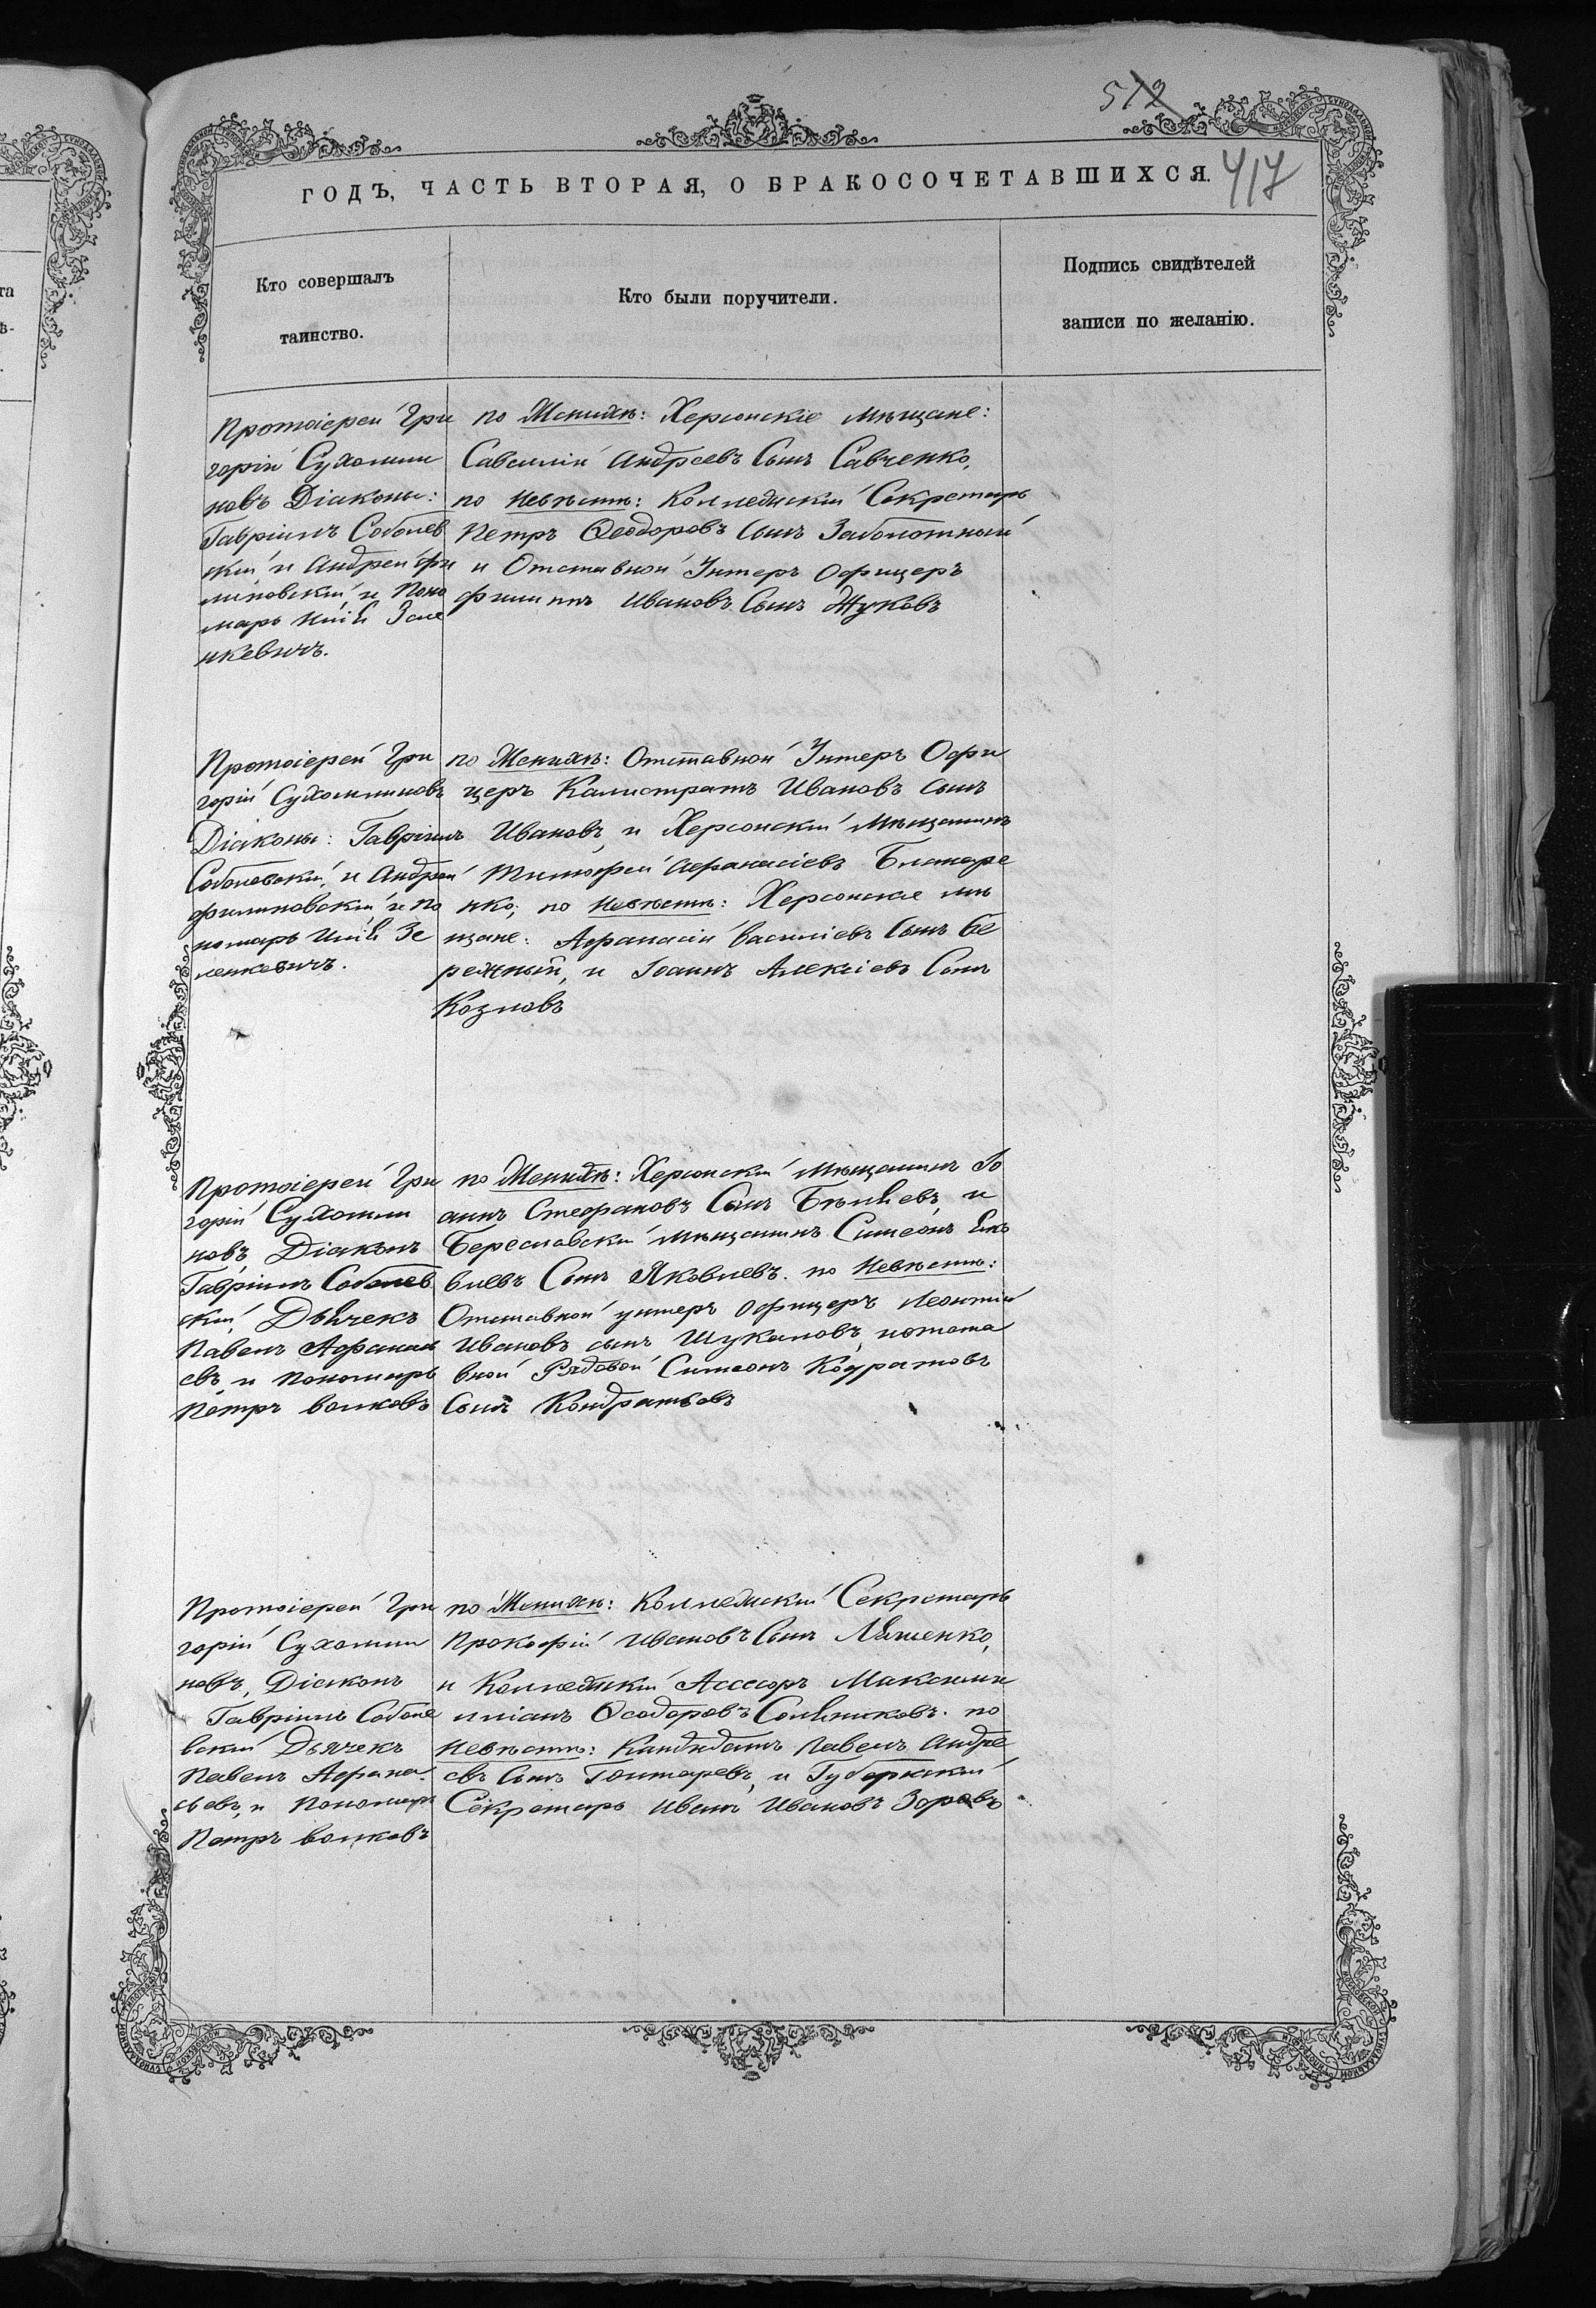 512
ГОДЪ, ЧАСТЬ ВТОРАЯ, О БРАКОСОЧЕТАВШИХСЯ.
417
Кто совершалъ
таинство.
Кто были поручители.
Подпись свидѣтелей
записи по желанію.
Протоіерей Гри
горій Сухомли
новъ Діаконы:
Гавріилъ Соболев
скій и Андрей Фи
липовскій и Поно
марь Зеле
нкевичъ.
по Женихѣ: Херсонскіе мѣщане:
Савелій Андреевъ Сынъ Савченко,
по Невѣстѣ: Коллежскій Секретарь
Петръ Ѳеодоровъ Сынъ Заболотный
и Отставной Унтеръ Офицеръ
Филиппъ Ивановъ Сынъ Жуковъ
Протоіерей Гри
горій Сухомлиновъ
Діаконы: Гавріилъ
Соболевскій, и Андрей
Филиповскій и по
номарь Зе
ленкевичъ.
по Женихѣ: Отставной Унтеръ Офи
церъ Калистратъ Ивановъ Сынъ
Ивановъ, и Херсонскій Мѣщанинъ
Тимофей Афанасіевъ
нко; по Невѣстѣ: Херсонскіе мѣ
щане: Афанасій Василіевъ Сынъ Бе
режный, и Іоаннъ Алексіевъ Сынъ
Козловъ
Протоіерей Гри
горій Сухомли
новъ, Діаконъ
Гавріилъ Соболев
скій, Дьячекъ
Павелъ Афанась
евъ, и Пономарь
Петръ Волковъ
по Женихѣ: Херсонскій Мѣщанинъ Іо
аннъ Стефановъ Сынъ Бѣляевъ, и
Береславскій Мѣщанинъ Симеонъ Яко
влевъ Сынъ Яковлевъ. по Невѣстѣ:
Отставной унтеръ офицеръ Леонтій
Ивановъ сынъ Шукановъ, иотста
вной Рядовой Симеонъ
Сынъ Кондратьевъ
Протоіерей Гри
горій Сухомли
новъ, Діаконъ
Гавріилъ Соболе
вскій Дьячекъ
Павелъ Афана
сьевъ, и Пономарь
Петръ Волковъ
по Женихѣ: Коллежскій Секретарь
Прокофій Ивановъ Сынъ Ляшенко,
и Коллежскій Ассесоръ Максими
лліанъ Ѳеодоровъ Соляниковъ. по
Невѣстѣ: Кандидатъ Павелъ Андре
евъ Сынъ Гонтаревъ, и Губернскій
Секретарь Иванъ Ивановъ Зоровъ